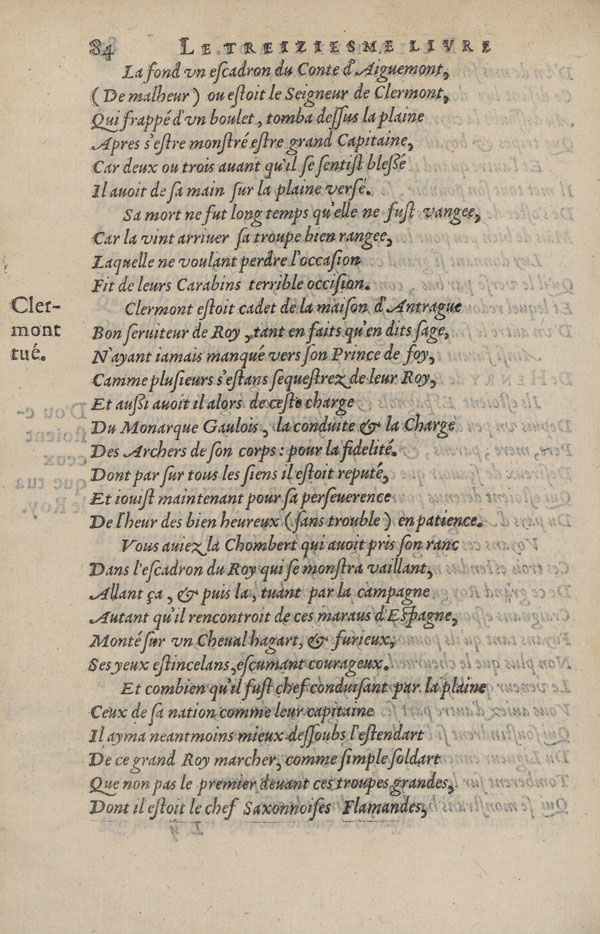 84 LE TREIZIESME LIVRE
La fond vn escadron du Conte d'Aiguemont,
(De malheur) ou estoit le Seigneur de Clermont,
Qui frappé d'vn boulet, tomba dessus la plaine
Apres s'estre monstré estre grand Capitaine,
Car deux ou trois auant qu'il se sentist blessé
Il auoit de sa main sur la plaine versé.
Sa mort ne fut long temps qu'elle ne fust vangee,
Car la vint arriuer sa troupe bien rangee,
Laquelle ne voulant perdre l'occasion
Fit de leurs Carabins terrible occision.
Clermont estoit cadet de la maison d'Antrague
Bon seruiteur de Roy, tant en faits qu'en dits sage,
N'ayant iamais manqué vers son Prince de foy,
Camme plusieurs s'estans sequestrez de leur Roy,
Et aussi auoit il alors de ceste charge
Du Monarque Gaulois, la conduite & la Charge
Des Archers de son corps: pour la fidelité.
Dont par sur tous les siens il estoit reputé,
Et iouist maintenant pour sa perseuerence
De l'heur des bien heureux (sans trouble) en patience.
Vous auiez la Chombert qui auoit pris son ranc
Dans l'escadron du Roy qui se monstra vaillant,
Allant ça, & puis la, tuant par la campagne
Autant qu'il rencontroit de ces maraus d'Espagne,
Monté sur vn Cheual hagart, & furieux,
Ses yeux estincelans, escumant courageux.
Et combien qu'il fust chef conduisant par la plaine
Ceux de sa nation comme leur capitaine
Il ayma neantmoins mieux dessoubs l'estendart
De ce grand Roy marcher, comme simple soldart
Que non pas le premier deuant ces troupes grandes,
Dont il estoit le chef Saxonnoises Flamandes,
Cler-
mont
tué.